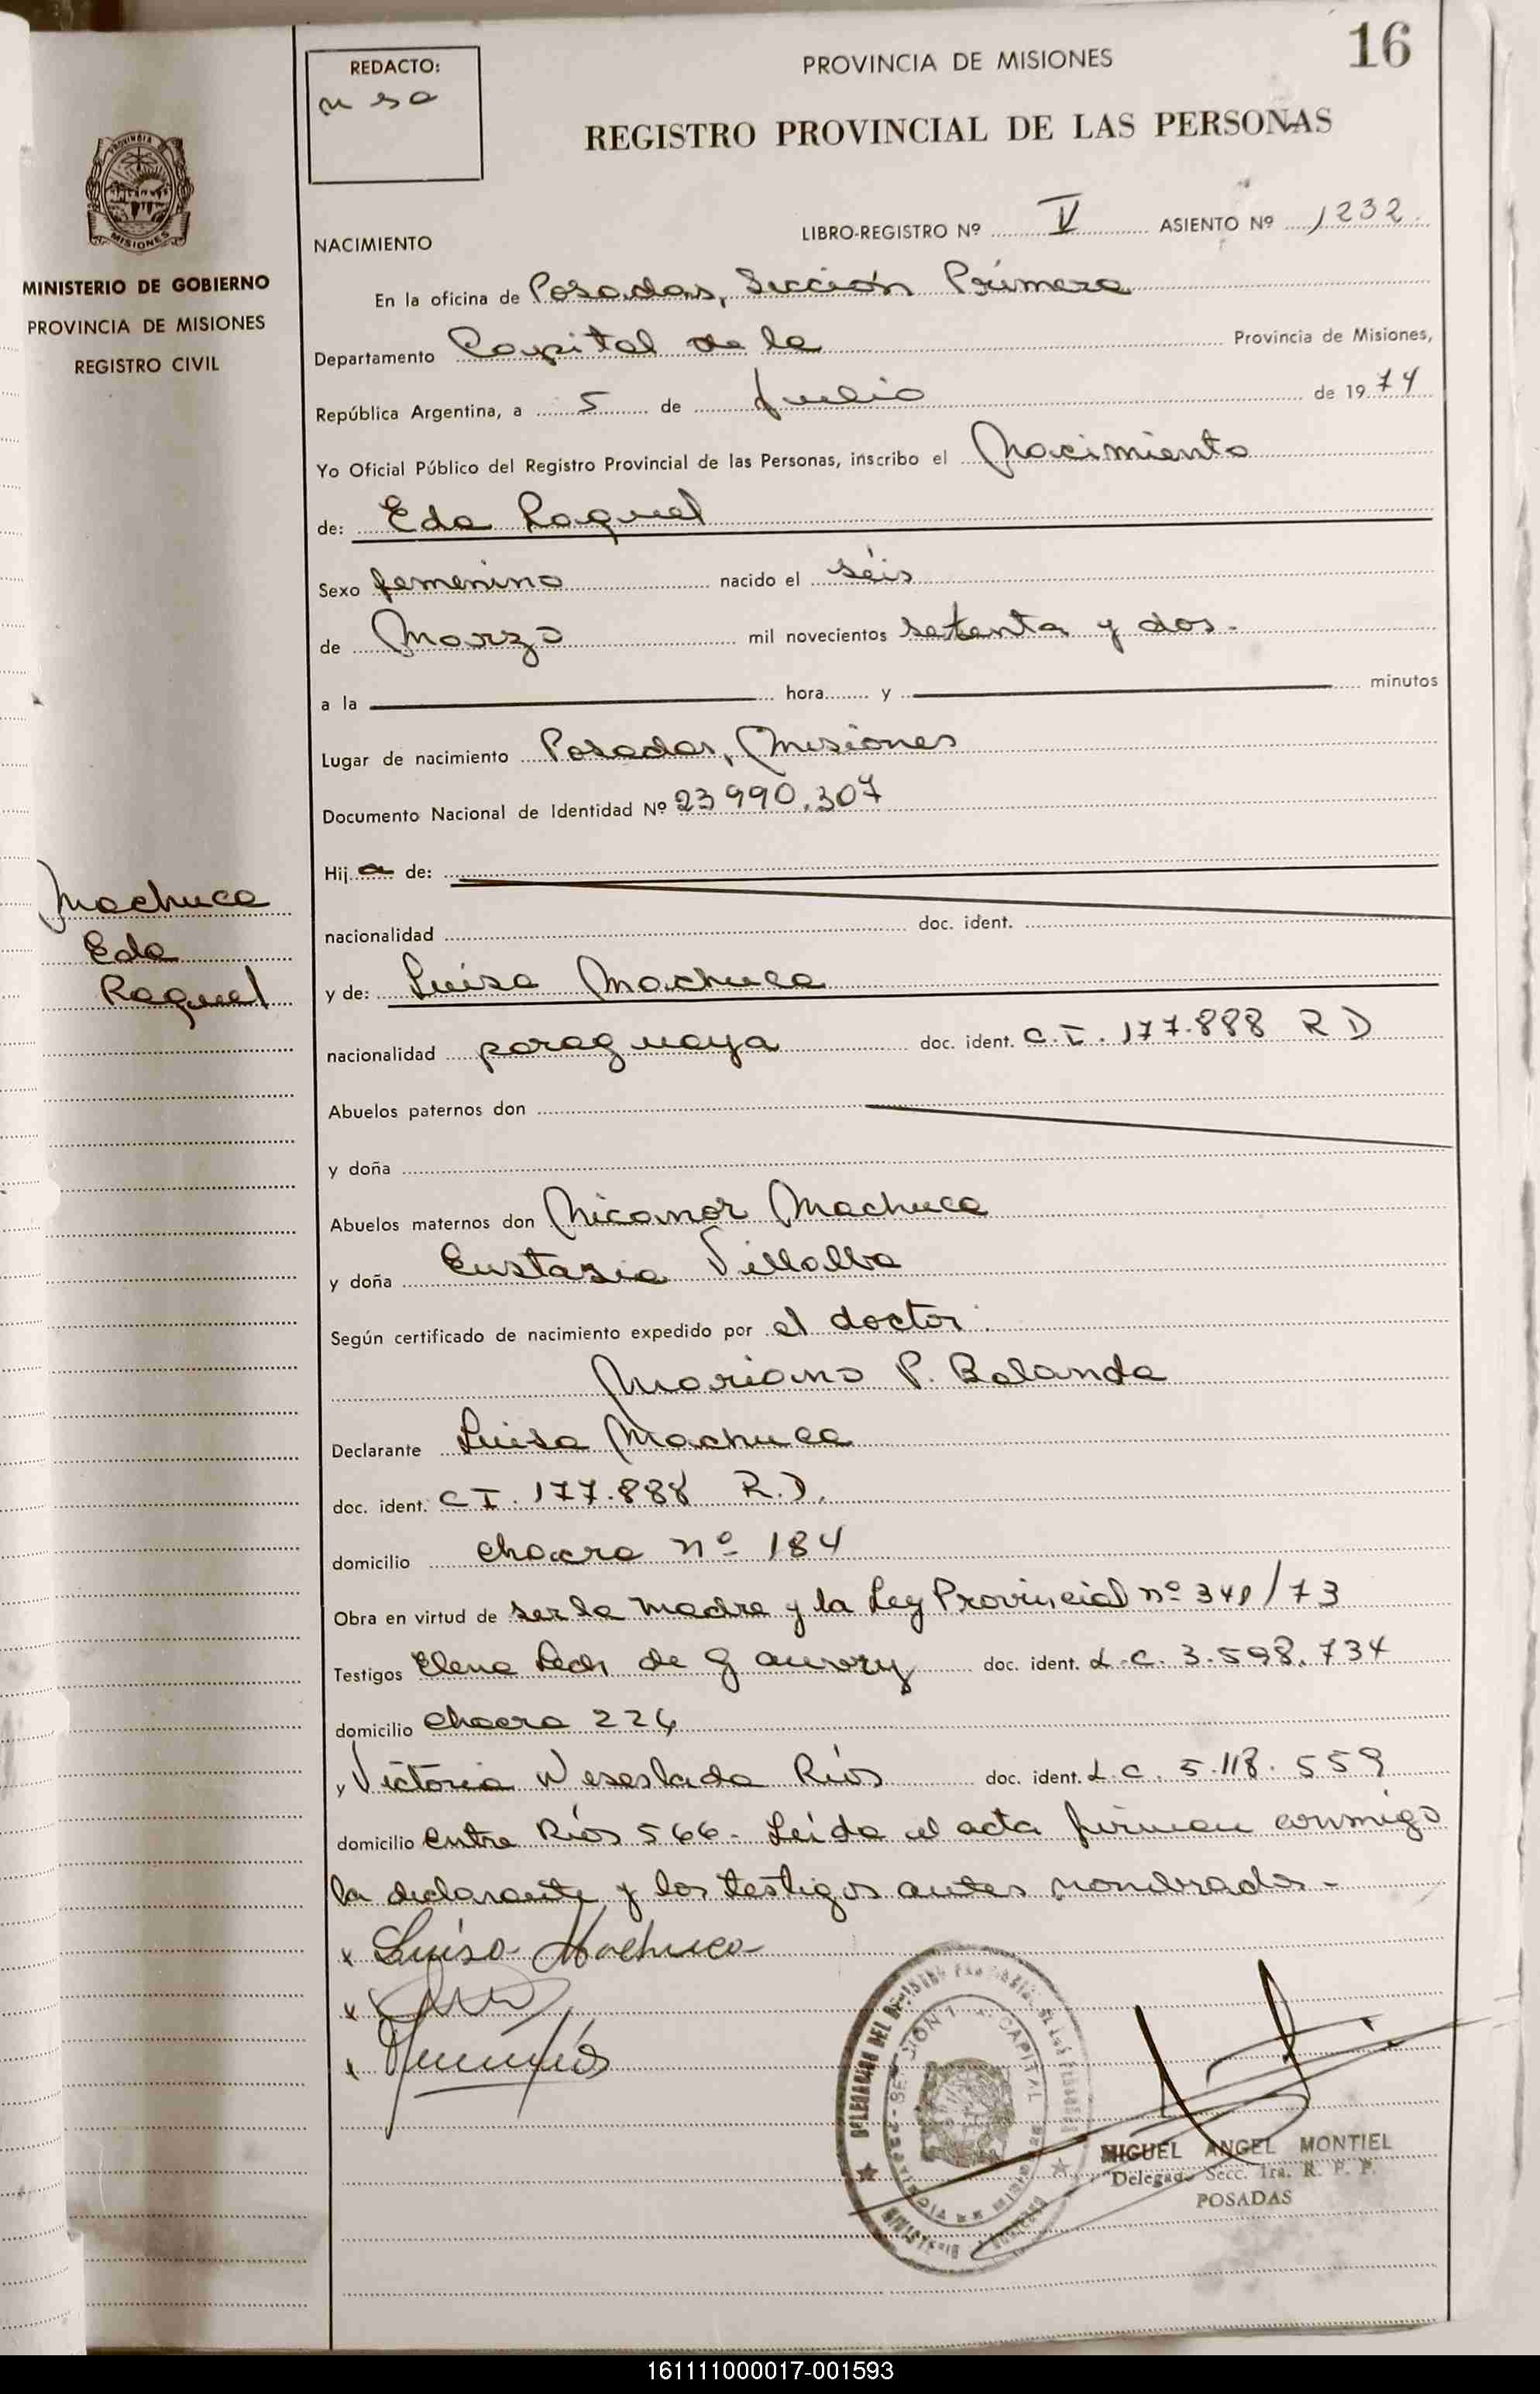 16
REDACTO:
PROVINCIA DE MISIONES
REGISTRO PROVINCIAL DE LAS PERSONAS
MISIONES
MINISTERIO DE GOBIERNO
PROVINCIA DE MISIONES
REGISTRO CIVIL
NACIMIENTO
LIBRO-REGISTRO Nº V ASIENTO Nº 1232
En la oficina de Posadas, Sección Primera
Departamento Capital de la Provincia de Misiones,
República Argentina, a 5 de Julio de 1974
Yo Oficial Público del Registro Provincial de las Personas, inscribo el Nacimiento
de: Eda Raquel
Sexo femenino nacido el séis
de Marzo mil novecientos setenta y dos.
a la hora y minutos
Lugar de nacimiento Posadas, Misiones
Documento Nacional de Identidad Nº 23990.307
Hija de:
nacionalidad doc. ident.
Machuca
Eda
Raquel
y de: Luisa Machuca
nacionalidad paraguaya doc. ident. C.I. 177.888 R D
Abuelos paternos don
y doña
Abuelos maternos don Nicanor Machuca
y doña Eustasia Villalba
Según certificado de nacimiento expedido por el doctor
Mariano P. Balanda
Declarante Luisa Machuca
doc. ident. C I. 177.888 R.D.
domicilio chacra nº 184
Obra en virtud de ser la madre y la Ley Provincial nº /73
Testigos Elena de doc. ident. L.C. 3.598.734
domicilio chacra
y Victoria Ríos doc. ident. L.C. 5.118.559
domicilio entre Ríos 566. Leída el acta firman conmigo
la declarante y los testigos antes nombrados.-
x Luisa Machuca
x
x
MIGUEL ANGEL MONTIEL
Delegado Secc. 1ra. R. P. P.
POSADAS
161111000017-001593